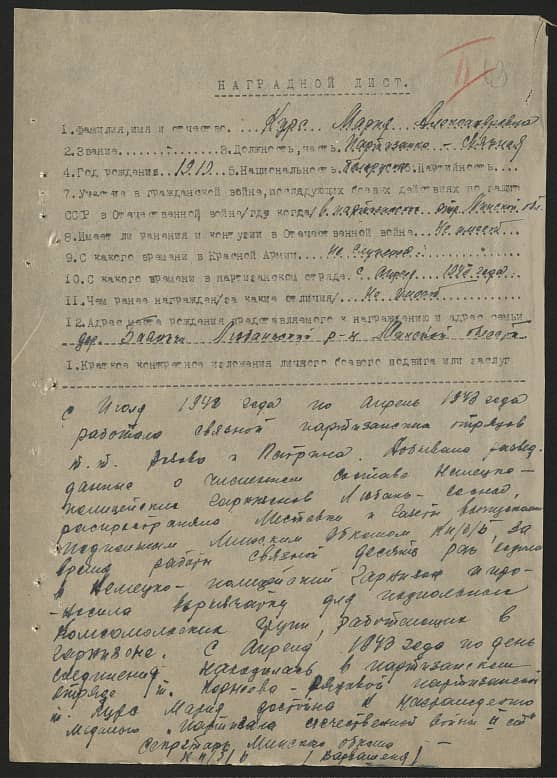 II
НАГРАДНОЙ ЛИСТ.
1.Фамилия,имя и отчество. Курс Мария Александровна
2.Звание 3.Должность,часть. Партизанка - связная
4.Год рождения 1919 5.Национальность. белоруска .Партийность
7.Участие в гражданской войне,последующих боевых действиях по защите
СССР в Отечественной войне/где когда/ в партизанском отр. Минской обл.
8.Имеет ли ранения и контузии в Отечественной войне Не имеет
9.С какого времени в Красной Армии не служила
10.С какого времени в партизанском отряде. с Апреля года
11.Чем ранее награжден/за какие отличия/ Не имеет
12.Адрес места рождения представляемого к награждению и адрес семьи
дер. Любаньский р-н Минской области
1.Краткое конкретное изложения личного боевого подвига или заслуг
С Июля 1942 года по Апрель 1943 года
работала связной партизанских отрядов
т.т. и Патрина. Добывала развед.
данные о численном составе Немецко-
полицейских гарнизонов Любань -
распространяла Листовки и Газеты выпускаемые
Подпольным Минским Обкомом КП/б/Б, за
время работы связной десять раз ходила
в Немецко-полицейский гарнизон и про-
носила взрывчатку для подпольных
Комсомольских групп, работающих в
гарнизоне. С Апреля 1943 года по день
соединения находилась в партизанском
отряде т. рядовой партизанкой
т. Курс Мария достойна к награждению
Медалью "Партизана отечественной войны" II ст
Секретарь Минского обкома
КП/б/Б / Варвашеня /